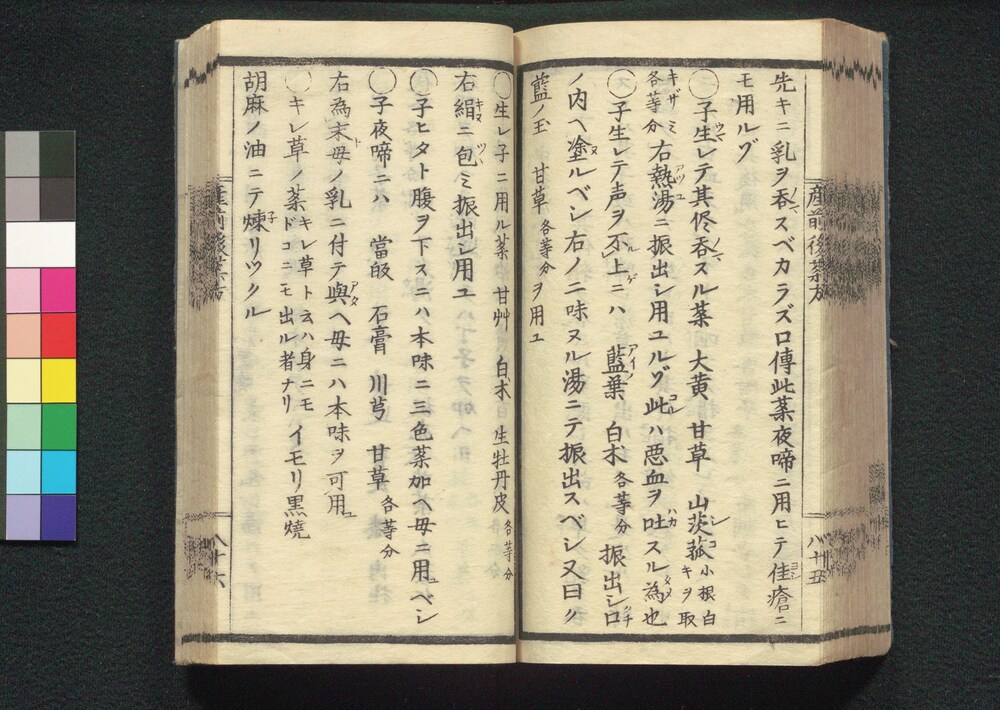 先キニ乳ヲ呑スベカラズ口傳此薬夜啼ニ用ヒテ佳瘡ニ
モ用ルゾ
○子生レテ其侭呑スル薬 大黄 甘草 山茨菰 小根白キヲ取
各等分 右熱湯ニ振出シ用ユルゾ此ハ悪血ヲ吐スル為也
○子生レテ声ヲ不上ニハ 藍葉 白朮 各等分 振出シ口
ノ内ヘ塗ルベシ右ノ二味ヌル湯ニテ振出スベシ又曰ク
藍ノ玉 甘草 各等分ヲ用ユ
産前後薬方
八十五
○生レ子ニ用ル薬 甘艸 白朮 生牡丹皮 各等分
右絹ニ包ミ振出シ用ユ
○子ヒタト腹ヲ下スニハ本味ニ三色薬加ヘ毋ニ用ベシ
○子夜啼ニハ 當皈 石膏 川芎 甘草 各等分
右為末毋ノ乳ニ付テ與ヘ毋ニハ本味ヲ可用
○キレ草ノ薬 キレ草ト云ハ身ニモドコニモ出ル者ナリ イモリノ黒焼
胡麻ノ油ニテ煉リツクル
産前後薬方
八十六